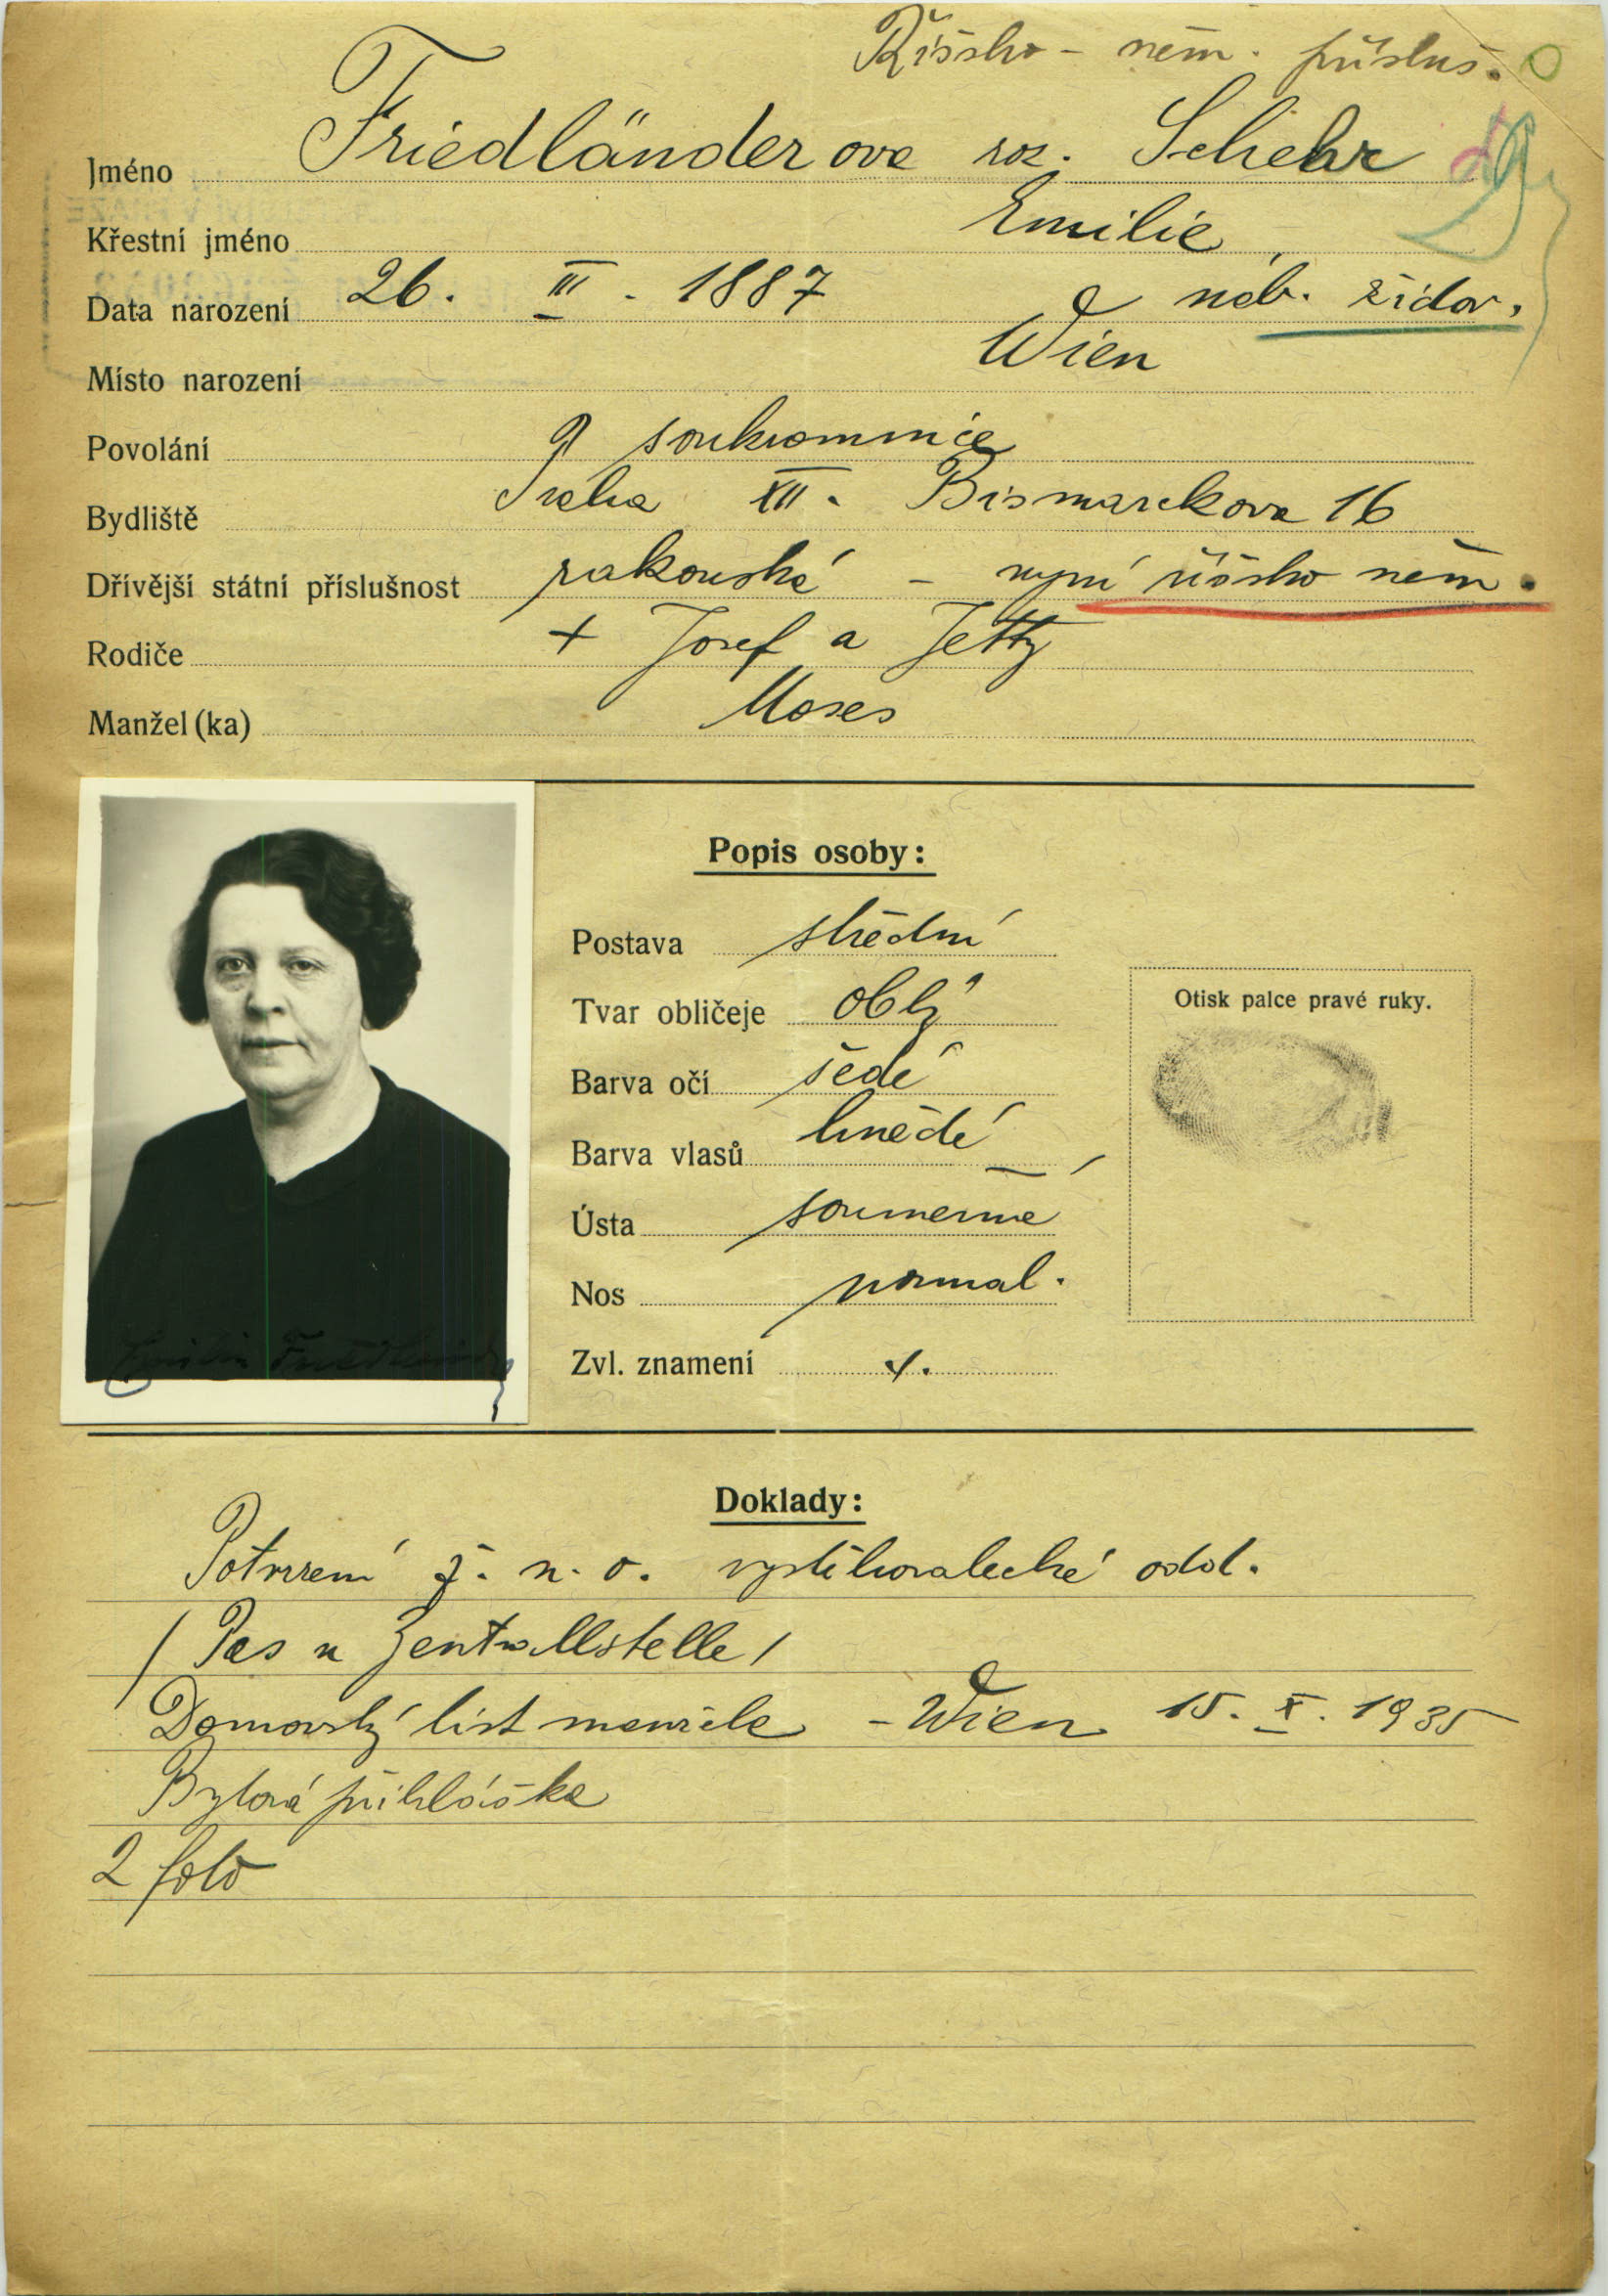 Říšsko - něm. přísluš.
Jméno Friedländerova roz. Schehr
Křestní jméno Emilie
Data narození 26. III. 1887 náb. židov.
Místo narození Wien
Povolání soukromnice
Bydliště Praha XII. Bismarckova 16
Dřívější státní příslušnost rakouská - nyní říšsko něm.
Rodiče + Josef a Jetty
Manžel(ka) Moses
Popis osoby:
Postava střední
Tvar obličeje oblý
Barva očí šedé
Barva vlasů hnědé
Ústa souměrné
Nos normal.
Zvl. znamení
Otisk palce pravé ruky.
Doklady:
Potvrzení ž. n. o. vystěhovalecké odd.
/ Pas u Zentrallstelle /
Domovský list manžela - Wien 15. X. 1935
Bytová přihláška
2 foto